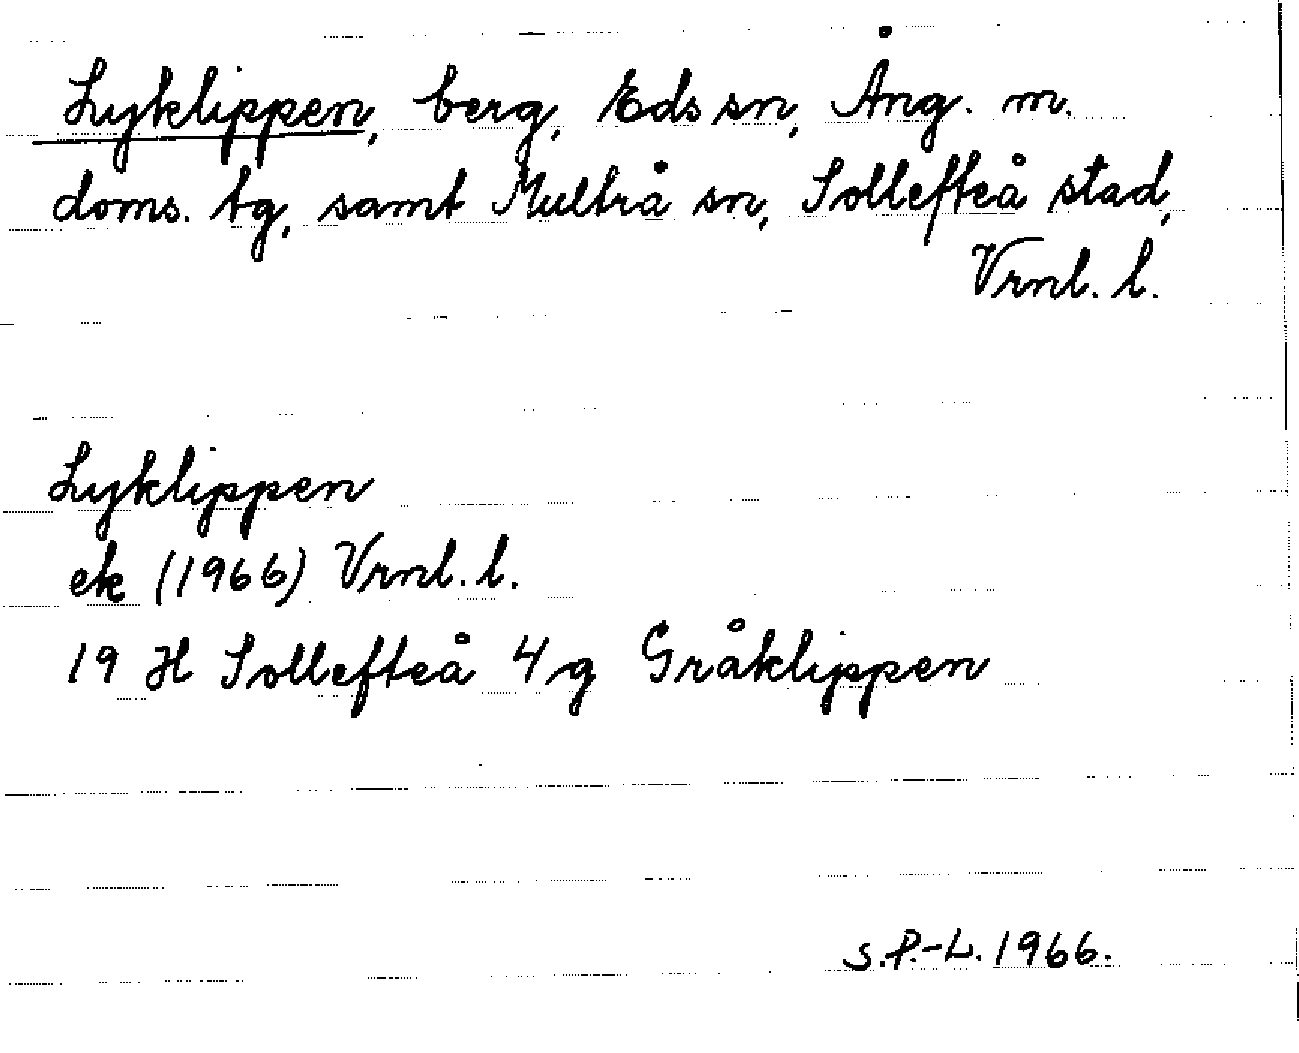 Lyklippen, berg, Eds sn, Ång. m.
doms. tg, samt Multrå sn, Sollefteå stad,
Vrnl. l.
Lyklippen
ek (1966) Vrnl. l.
19 H Sollefteå 4 g Gråklippen
S.P.-L. 1966.